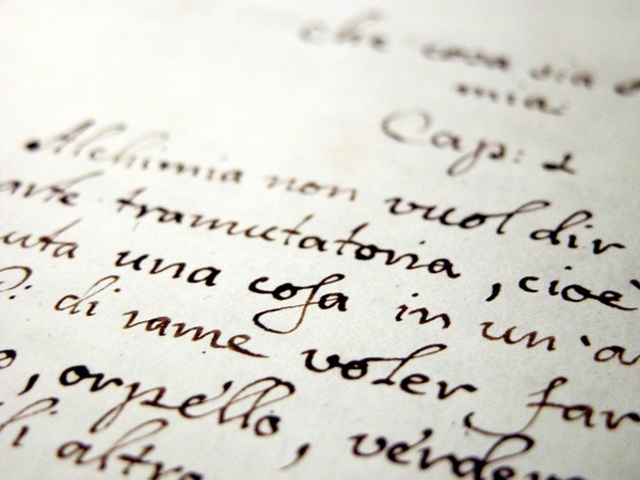 che cosa sia
mia:
Cap: 1
Alchimia non vuol dir
arte tramutatoria, cioè
uta una cosa in un'a
di rame voler far
, orpello, verdem
di altro